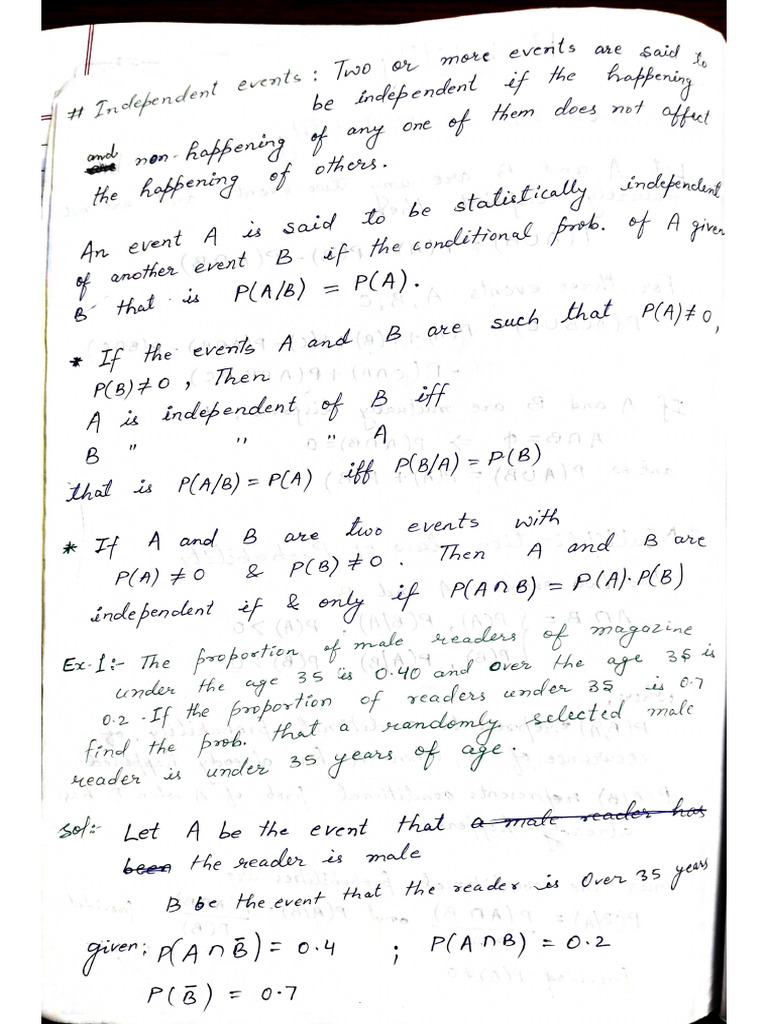 # Independent events : Two or more events are said to
be independent if the happening
and non-happening of any one of them does not affect
the happening of others.
An event A is said to be statistically independent
of another event B if the conditional prob. of A given
B that is P(A/B) = P(A).
* If the events A and B are such that P(A)≠0,
P(B)≠0, Then
A is independent of B iff
B " " " A
that is P(A/B) = P(A) iff P(B/A) = P(B)
* If A and B are two events with
P(A) ≠ 0 & P(B) ≠ 0. Then A and B are
independent if & only if P(A∩B) = P(A)·P(B)
Ex-1:- The proportion of male readers of magozine
under the age 35 is 0.40 and over the age 35 is
0.2. If the proportion of readers under 35 is 0.7
find the prob. that a randomly selected male
reader is under 35 years of age.
Sol:- Let A be the event that a male reader has
been the reader is male
B be the event that the reader is Over 35 years
given; P(A∩B̄) = 0.4 ; P(A∩B) = 0.2
P(B̄) = 0.7